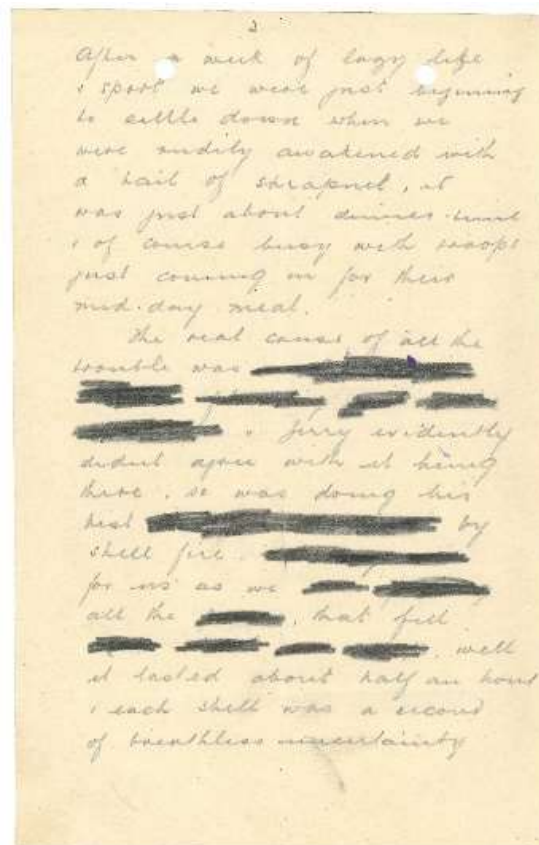 2
After a week of lazy life
& sport we were just begining
to settle down when we
were rudily awakened with
a hail of shrapnel, it
was just about dinner time
& of course busy with troops
just coming in for their
mid-day meal.
the real cause of all the
trouble was
& Jerry evidently
didnt agree with it being
there, so was doing his
best by
shell fire.
for us as we
all the , that fell
well
it lasted about half an hour
& each shell was a second
of breathless uncertainty